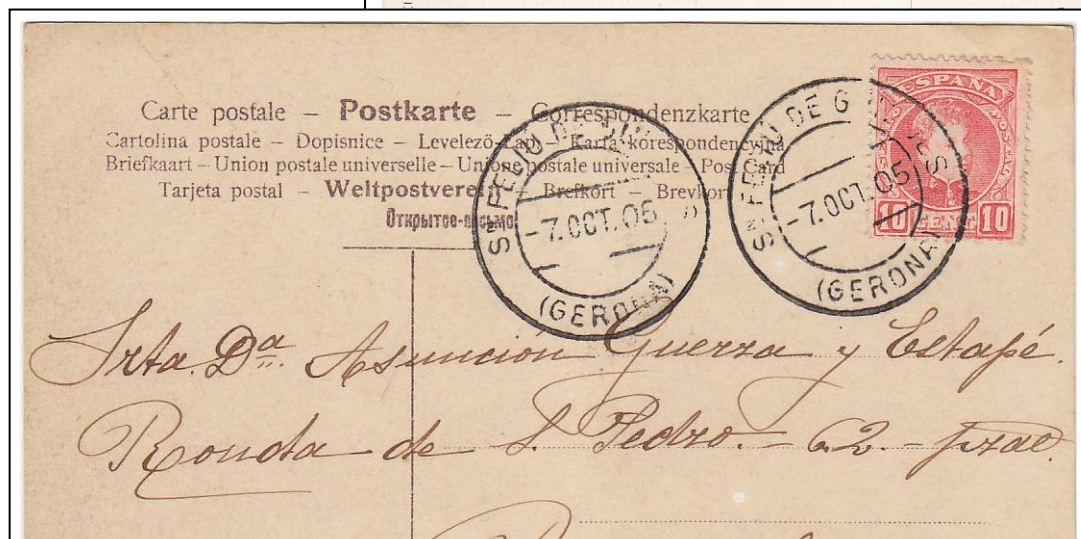 Carte postale – Postkarte – Correspondenzkarte
Cartolina postale – Dopisnice – Levelező-Lap – Karta korespondencyjna
Briefkaart – Union postale universelle – Unione postale universale – Post Card
Tarjeta postal – Weltpostverein – Brefkort – Brevkort
Открытое-письмо
Sⁿ FELIU DE
-7.OCT.05
(GERONA)
Sⁿ FELIU DE G
-7.OCT.05
(GERONA)
ESPAÑA
10 CENT 10
Srta. Dª. Asunción Guerra y Estapé.
Ronda de S. Pedro.– 62 – pral.